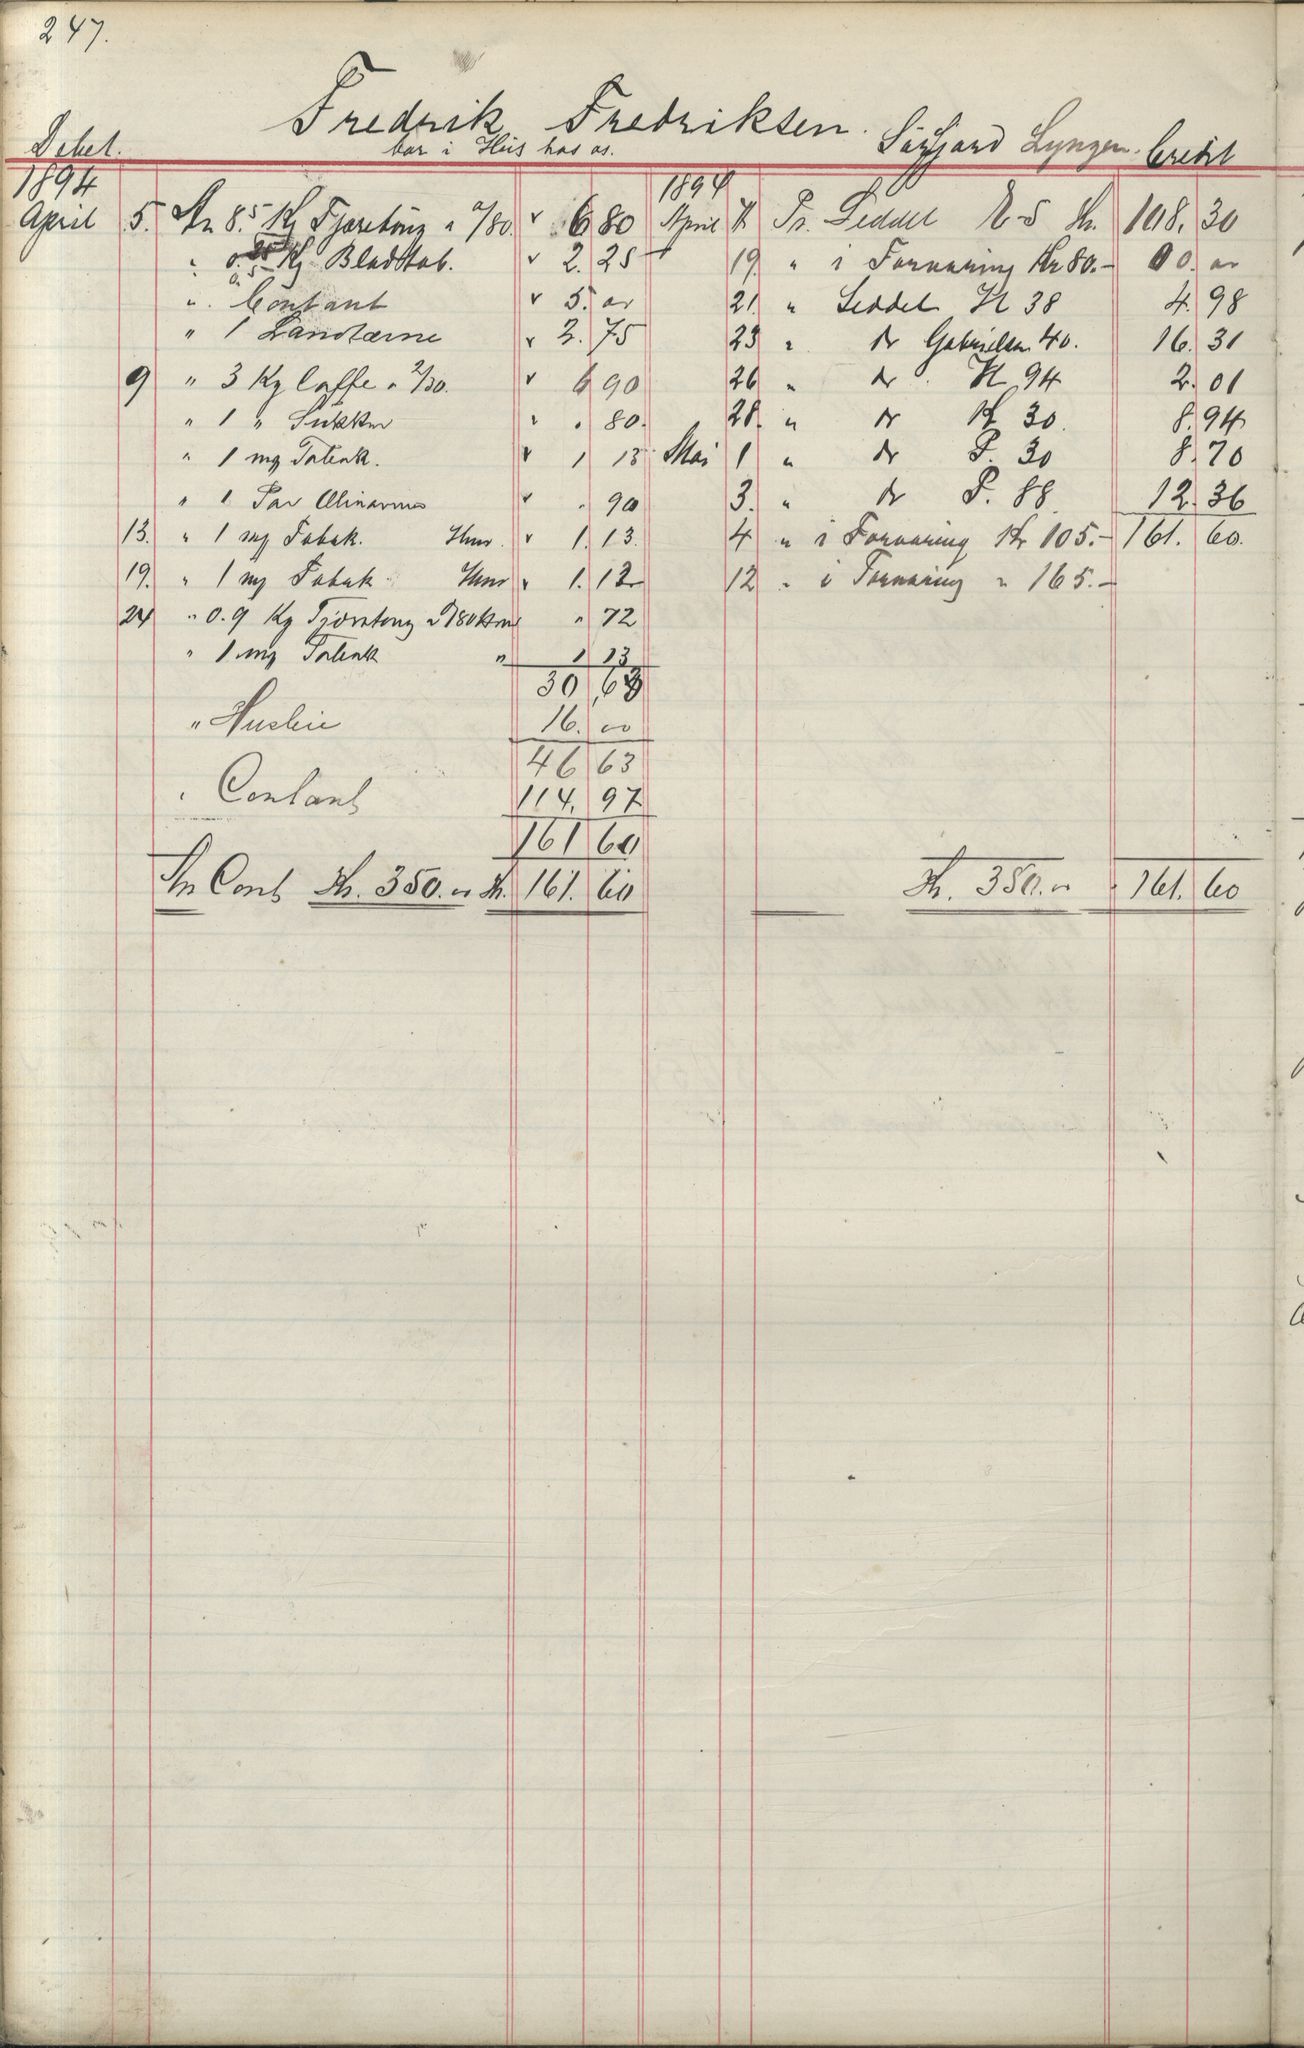 247.
Fredrik Fredriksen. Sörfjord Lyngen.
bor i Hus hos os.
Debet. Credit
1894
April 5. An 8.5 Kg Kg " /80. v 6 80
" 0.5 Kg Bladtob. v 2. 25
" Contant v 5. oo
" 1 v 2. 75
9 " 3 Kg Caffe a 2/30. v 6 90
" 1 " Sukker " . 80.
" 1 mg Tobak. v 1 13
" 1 Par v . 90
13. " 1 mg Tobak. v 1. 13.
19. " 1 mg Tobak v 1. 13
24 " 0.9 Kg /80 " 72
" 1 mg Tobak " 1 13
30 63
" Husleie 16. oo
46 63
" Contant 114. 97
161 60
An Cont Kr. 350. oo Kr. 161. 60
1894
April Pr. Seddel E-5 Kr. 108. 30
19. " i Forvaring Kr 80.- 00. oo
21. " Seddel H 38 4. 98
23 " do Gabrielsen 40. 16. 31
26 " do H 94 2. 01
28. " do H 30. 8. 94
Mai 1 " do P. 30 8. 70
3. " do P. 88 12. 36
4 " i Forvaring Kr 105.- 161. 60.
12 " i Forvaring " 165.-
Kr. 350. oo 161. 60